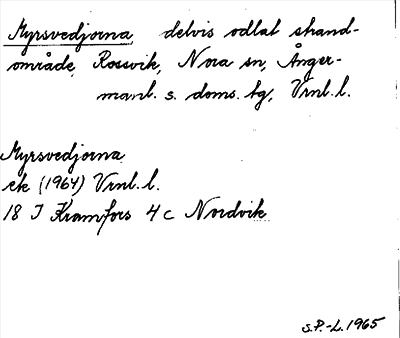 Myrsvedjorna delvis odlat strand-
område, Rossvik, Nora sn, Ånger-
manl. s. doms. tg, Vrnl. l.
Myrsvedjorna
ek (1964) Vrnl. l.
18 I Kramfors 4 c Nordvik
S.P.-L. 1965